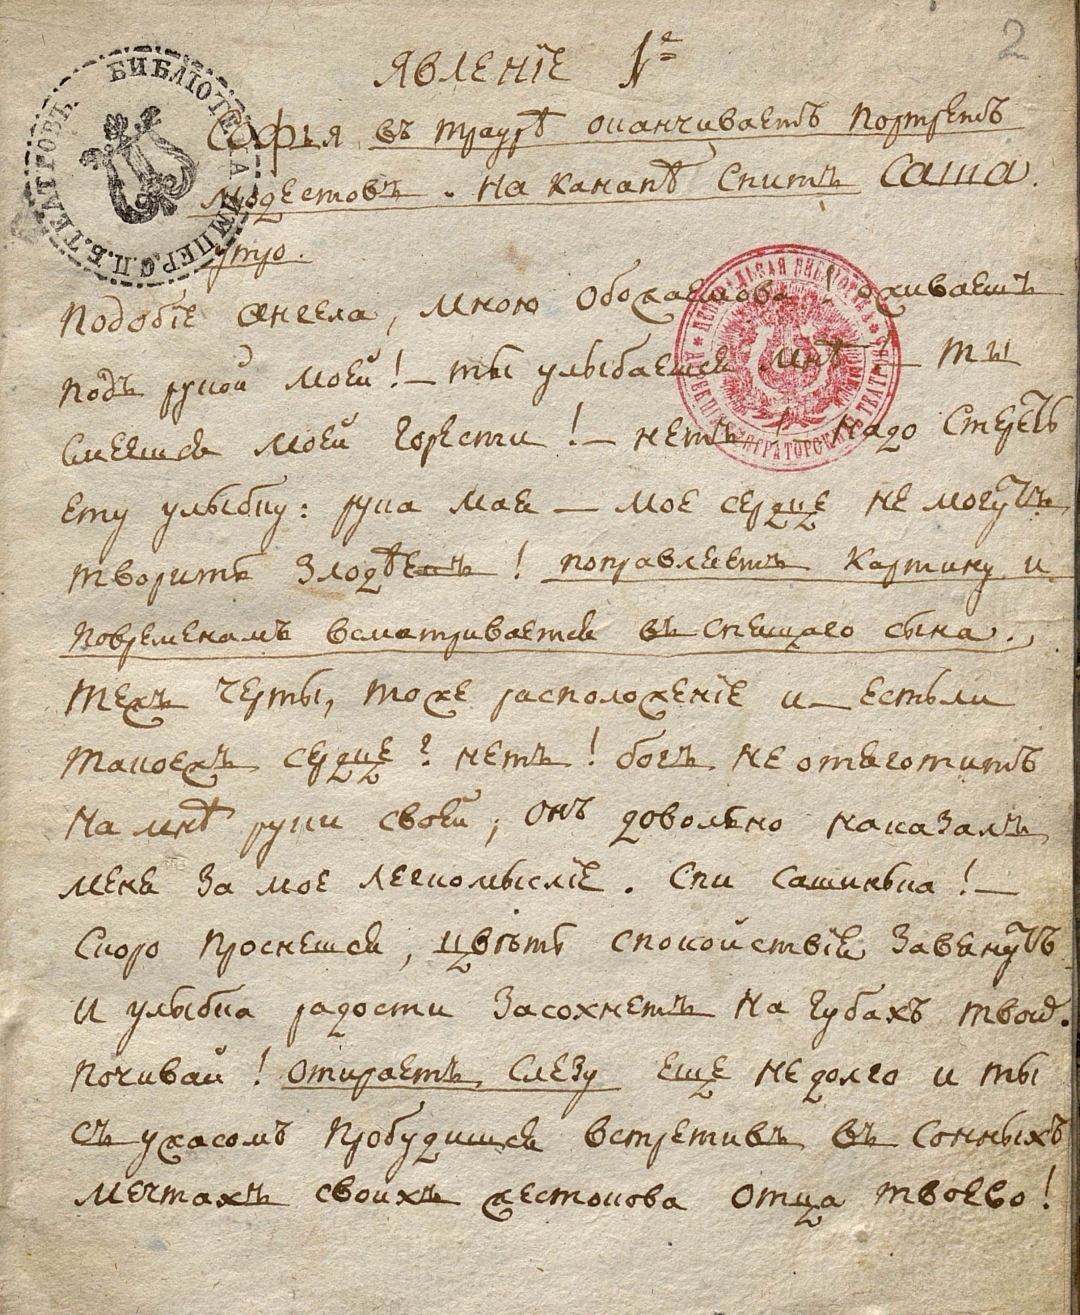 2
ЯВЛЕНІЕ 1е
БИБЛІОТЕКА ИМПЕР. С.П.Б. ТЕАТРОВЪ
Софья въ траурѣ оканчиваетъ Портретъ
Модестовъ. На Канапѣ Спитъ Саша.
Утро.
ЦЕНТРАЛЬНАЯ БИБЛИОТЕКА
Подобіе Ангела, мною Обожаемова! оживаешъ
подъ рукой моей! — ты улыбаешся мнѣ — ты
Смеешся моей Горести! — нетъ! Надо Стереть
Ету улыбку: рука мая — мое сердце не могутъ
творить Злодѣевъ! поправляетъ Картину и
Повременамъ всматривается въ спящаго сына.
Тежъ черты, тоже расположеніе и — естьли
такоежъ сердце? нетъ! богъ не отяготитъ
На мнѣ руки своей, Онъ довольно наказалъ
меня За мое легкомысліе. Спи Сашинька! —
Скоро Проснешся, цвѣтъ спокойствія Завянутъ
И улыбка радости Засохнетъ На Губахъ твоих.
Почивай! Отираетъ Слезу еще не долго и ты
Съ ужасомъ Пробудишся встретивъ въ Сонныхъ
мечтахъ своихъ жестокова Отца твоево!